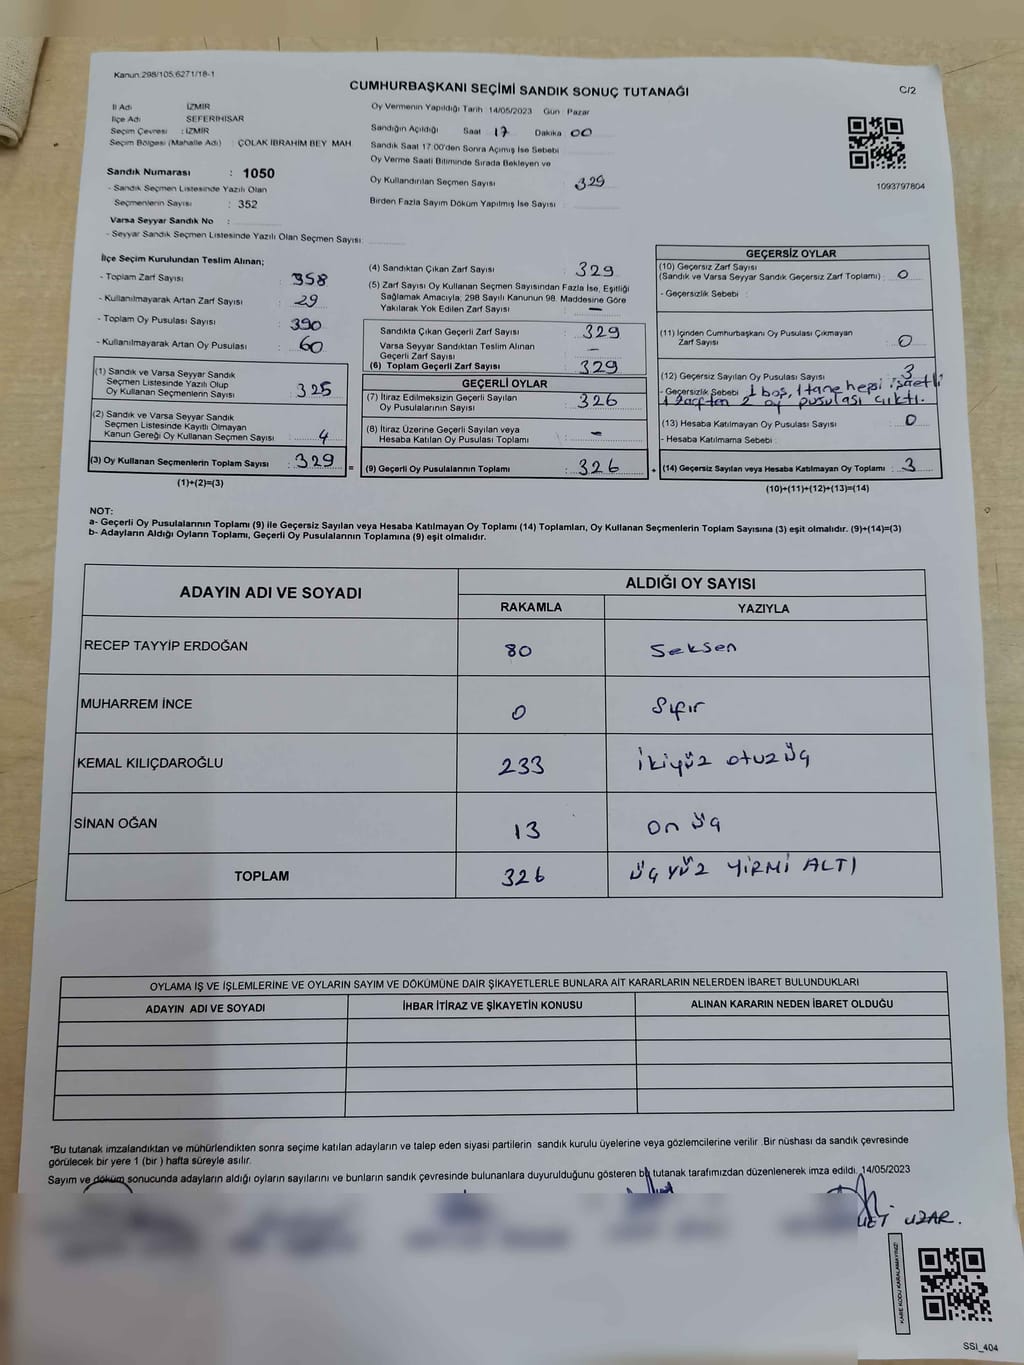 Kanun:298/105,6271/18-1
CUMHURBAŞKANI SEÇİMİ SANDIK SONUÇ TUTANAĞI
C/2
İl Adı İZMİR
İlçe Adı SEFERİHİSAR
Seçim Çevresi : İZMİR
Seçim Bölgesi (Mahalle Adı) : ÇOLAK İBRAHİM BEY MAH
Sandık Numarası : 1050
- Sandık Seçmen Listesinde Yazılı Olan
Seçmenlerin Sayısı : 352
Varsa Seyyar Sandık No :
- Seyyar Sandık Seçmen Listesinde Yazılı Olan Seçmen Sayısı:
Oy Vermenin Yapıldığı Tarih :14/05/2023 Gün : Pazar
Sandığın Açıldığı Saat 17 Dakika 00
Sandık Saat 17:00'den Sonra Açımış İse Sebebi
Oy Verme Saati Bitiminde Sırada Bekleyen ve
Oy Kullandırılan Seçmen Sayısı : 329
Birden Fazla Sayım Döküm Yapılmış İse Sayısı :
1093797804
İlçe Seçim Kurulundan Teslim Alınan;
- Toplam Zarf Sayısı : 358
- Kullanılmayarak Artan Zarf Sayısı : 29
- Toplam Oy Pusulası Sayısı : 390
- Kullanılmayarak Artan Oy Pusulası : 60
(1) Sandık ve Varsa Seyyar Sandık
Seçmen Listesinde Yazılı Olup
Oy Kullanan Seçmenlerin Sayısı : 325
(2) Sandık ve Varsa Seyyar Sandık
Seçmen Listesinde Kayıtlı Olmayan
Kanun Gereği Oy Kullanan Seçmen Sayısı : 4
(3) Oy Kullanan Seçmenlerin Toplam Sayısı : 329
(1)+(2)=(3)
(4) Sandıktan Çıkan Zarf Sayısı : 329
(5) Zarf Sayısı Oy Kullanan Seçmen Sayısından Fazla İse, Eşitliği
Sağlamak Amacıyla; 298 Sayılı Kanunun 98. Maddesine Göre
Yakılarak Yok Edilen Zarf Sayısı : —
Sandıkta Çıkan Geçerli Zarf Sayısı : 329
Varsa Seyyar Sandıktan Teslim Alınan
Geçerli Zarf Sayısı : —
(6) Toplam Geçerli Zarf Sayısı : 329
GEÇERLİ OYLAR
(7) İtiraz Edilmeksizin Geçerli Sayılan
Oy Pusulalarının Sayısı : 326
(8) İtiraz Üzerine Geçerli Sayılan veya
Hesaba Katılan Oy Pusulası Toplamı : —
= (9) Geçerli Oy Pusulalarının Toplamı : 326 +
GEÇERSİZ OYLAR
(10) Geçersiz Zarf Sayısı
(Sandık ve Varsa Seyyar Sandık Geçersiz Zarf Toplamı) : 0
- Geçersizlik Sebebi :
(11) İçinden Cumhurbaşkanı Oy Pusulası Çıkmayan
Zarf Sayısı : 0
(12) Geçersiz Sayılan Oy Pusulası Sayısı : 3
- Geçersizlik Sebebi 1 boş, 1 tane hepsi işaretli
1 zarften 2 oy pusulası çıktı.
(13) Hesaba Katılmayan Oy Pusulası Sayısı : 0
- Hesaba Katılmama Sebebi :
(14) Geçersiz Sayılan veya Hesaba Katılmayan Oy Toplamı : 3
(10)+(11)+(12)+(13)=(14)
NOT:
a- Geçerli Oy Pusulalarının Toplamı (9) ile Geçersiz Sayılan veya Hesaba Katılmayan Oy Toplamı (14) Toplamları, Oy Kullanan Seçmenlerin Toplam Sayısına (3) eşit olmalıdır. (9)+(14)=(3)
b- Adayların Aldığı Oyların Toplamı, Geçerli Oy Pusulalarının Toplamına (9) eşit olmalıdır.
ADAYIN ADI VE SOYADI
ALDIĞI OY SAYISI
RAKAMLA YAZIYLA
RECEP TAYYİP ERDOĞAN 80 Seksen
MUHARREM İNCE 0 Sıfır
KEMAL KILIÇDAROĞLU 233 ikiyüz otuz üç
SİNAN OĞAN 13 on üç
TOPLAM 326 üç yüz YİRMİ ALTI
OYLAMA İŞ VE İŞLEMLERİNE VE OYLARIN SAYIM VE DÖKÜMÜNE DAİR ŞİKAYETLERLE BUNLARA AİT KARARLARIN NELERDEN İBARET BULUNDUKLARI
ADAYIN ADI VE SOYADI İHBAR İTİRAZ VE ŞİKAYETİN KONUSU ALINAN KARARIN NEDEN İBARET OLDUĞU
*Bu tutanak imzalandıktan ve mühürlendikten sonra seçime katılan adayların ve talep eden siyasi partilerin sandık kurulu üyelerine veya gözlemcilerine verilir .Bir nüshası da sandık çevresinde
görülecek bir yere 1 (bir ) hafta süreyle asılır.
Sayım ve döküm sonucunda adayların aldığı oyların sayılarını ve bunların sandık çevresinde bulunanlara duyurulduğunu gösteren bu tutanak tarafımızdan düzenlenerek imza edildi. 14/05/2023
UZAR.
KARE KODU KARALAMAYINIZ!
SSI_404